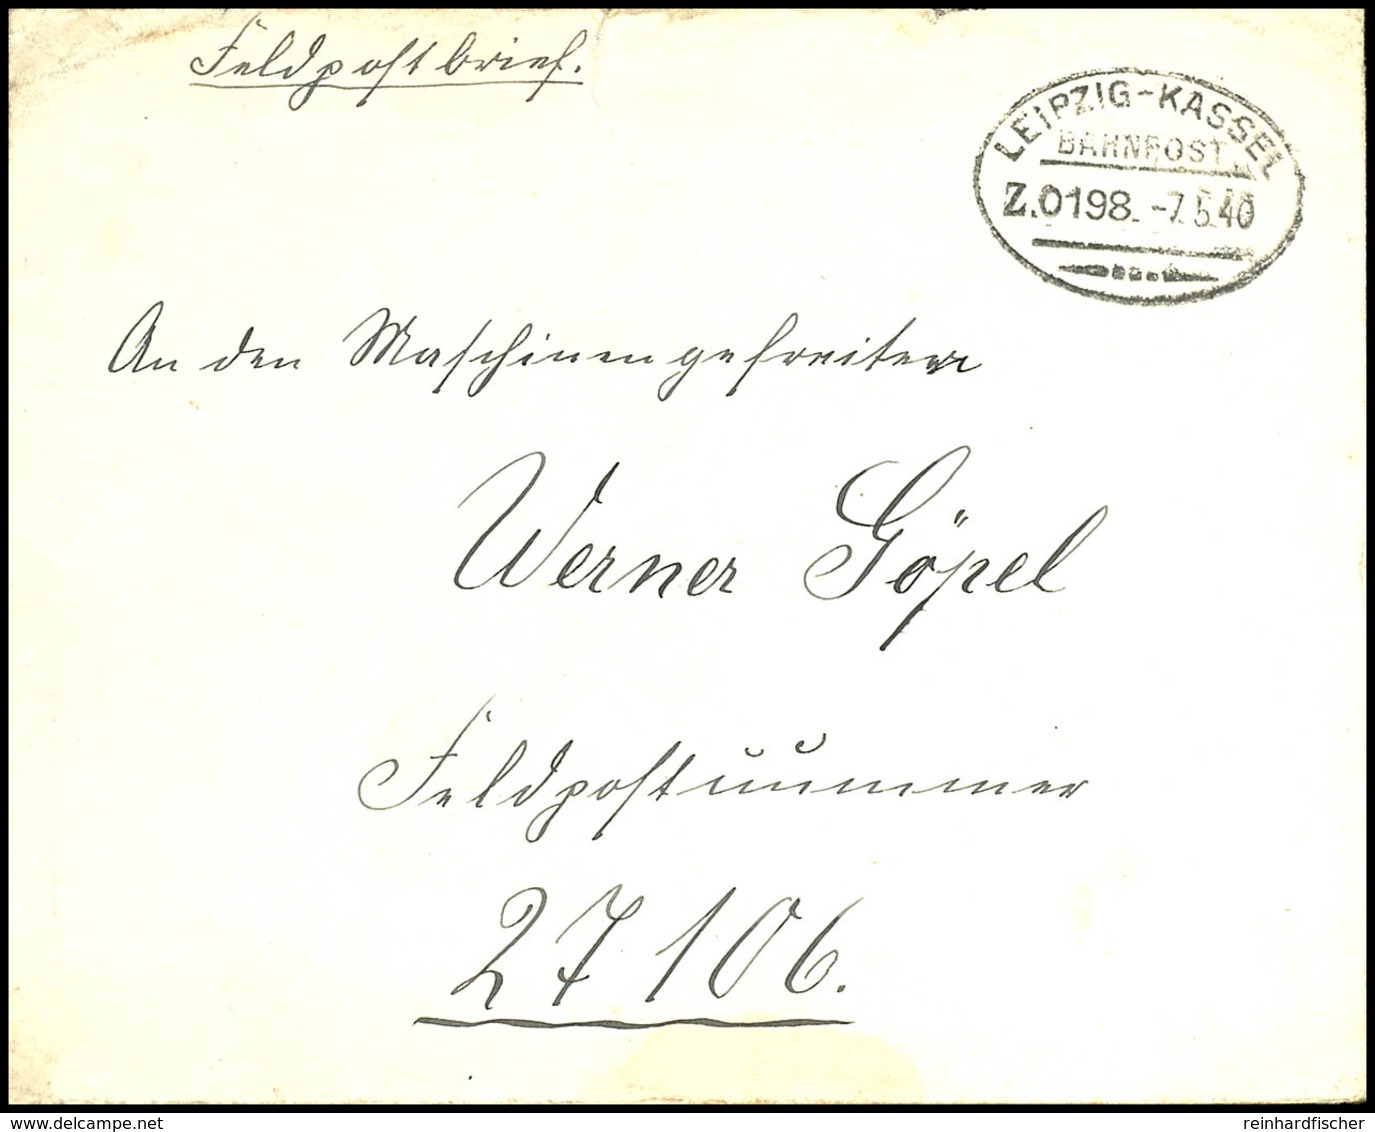 Feldpostbrief.
LEIPZIG-KASSEL
BAHNPOST
Z.0198. -7.5.40
An den Maschinengefreiten
Werner Göpel
Feldpostnummer
27106.
delcampe.net
reinhardfischer